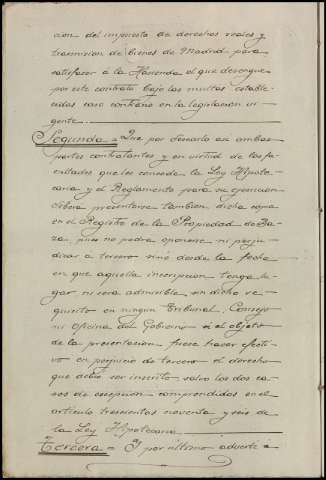 cion del impuesto de derechos reales y
trasmision de bienes de Madrid para
satisfacer á la Hacienda el que devengue
por este contrato bajo las multas estable-
cidas caso contrario en la legislacion vi-
gente.
Segunda = Que por desearlo asi ambas
partes contratantes y en virtud de las fa-
cultades que les concede la Ley Hipote-
caria y el Reglamento para su ejecucion
debera presentarse tambien dicha copia
en el Registro de la Propiedad de Ba-
za, pues no podra oponerse ni perju-
dicar a tercero sinó desde la fecha
en que aquella inscripcion tenga lu-
gar ni sera admisible sin dicho re-
quisito en ningun Tribunal, Consejo
ni Oficina del Gobierno si el objeto
de la presentacion fuese hacer efecti-
vo en perjuicio de tercero el derecho
que debió ser inscrito salvo los dos ca-
sos de escepcion comprendidos en el
artículo trescientos noventa y seis de
la Ley Hipotecaria.
Tercera = Y por último advertí á